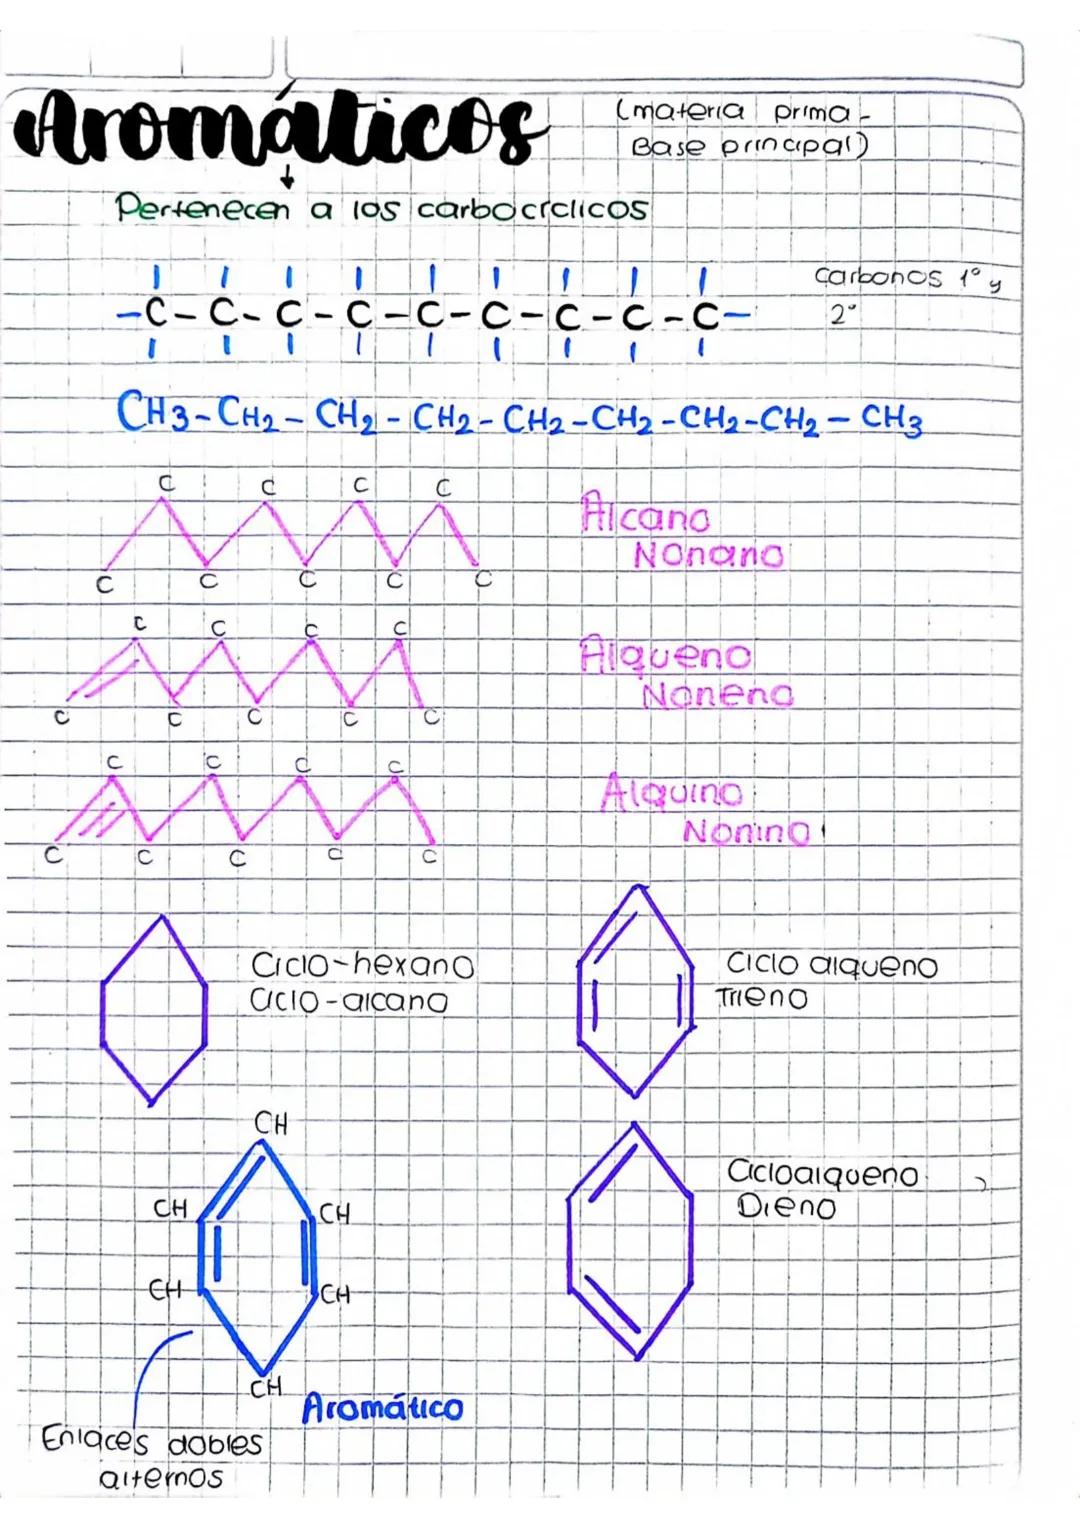 Aromáticos
(materia prima -
Base principal)
Pertenecen a los carbocíclicos
Carbonos 1° y
2°
-C-C-C-C-C-C-C-C-C-
CH3-CH2-CH2-CH2-CH2-CH2-CH2-CH2-CH3
C C C C
Alcano
Nonano
C C C C C
C C C C
Alqueno
Noneno
C C C C C
C C C C
Alquino
Nonino
C C C C C
Ciclo-hexano
Ciclo-alcano
Ciclo alqueno
Trieno
CH
CH CH
CH CH
CH
Aromático
Enlaces dobles
alternos
Cicloalqueno
Dieno